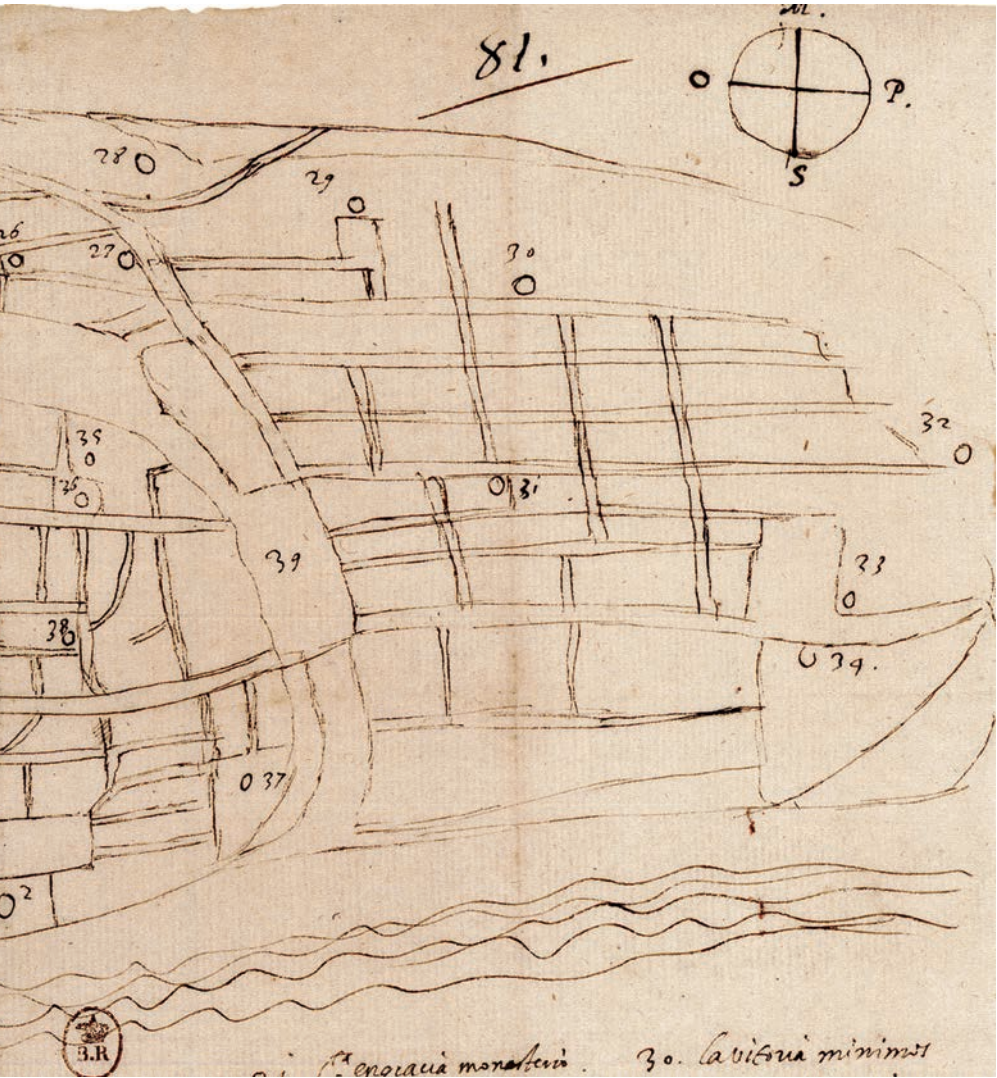 M.
81.
O P.
S
28
29
26 27
30
32
35
36
31
39
33
38
34.
37
2
B.R
S.ta engracia monasterio. 30. la vitoria minimos